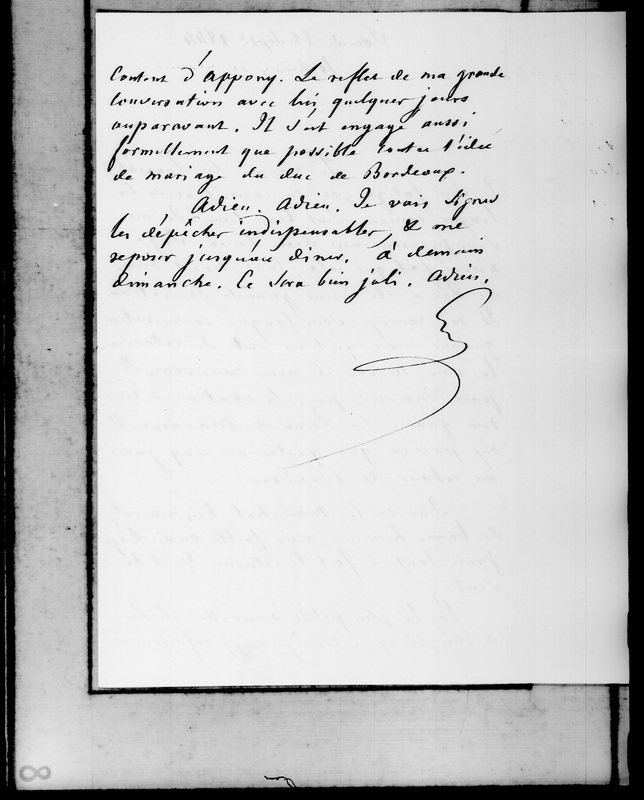 Content d'Appony. Le reflet de ma grande
conversation avec lui, quelques jours
auparavant. Il s'est engagé aussi
formellement que possible contre l'idée
de mariage du duc de Bordeaux.
Adieu. Adieu. Je vais signer
les dépêches indispensables, & me
reposer jusqu'au diner. à demain
dimanche. Ce sera bien joli. Adieu.